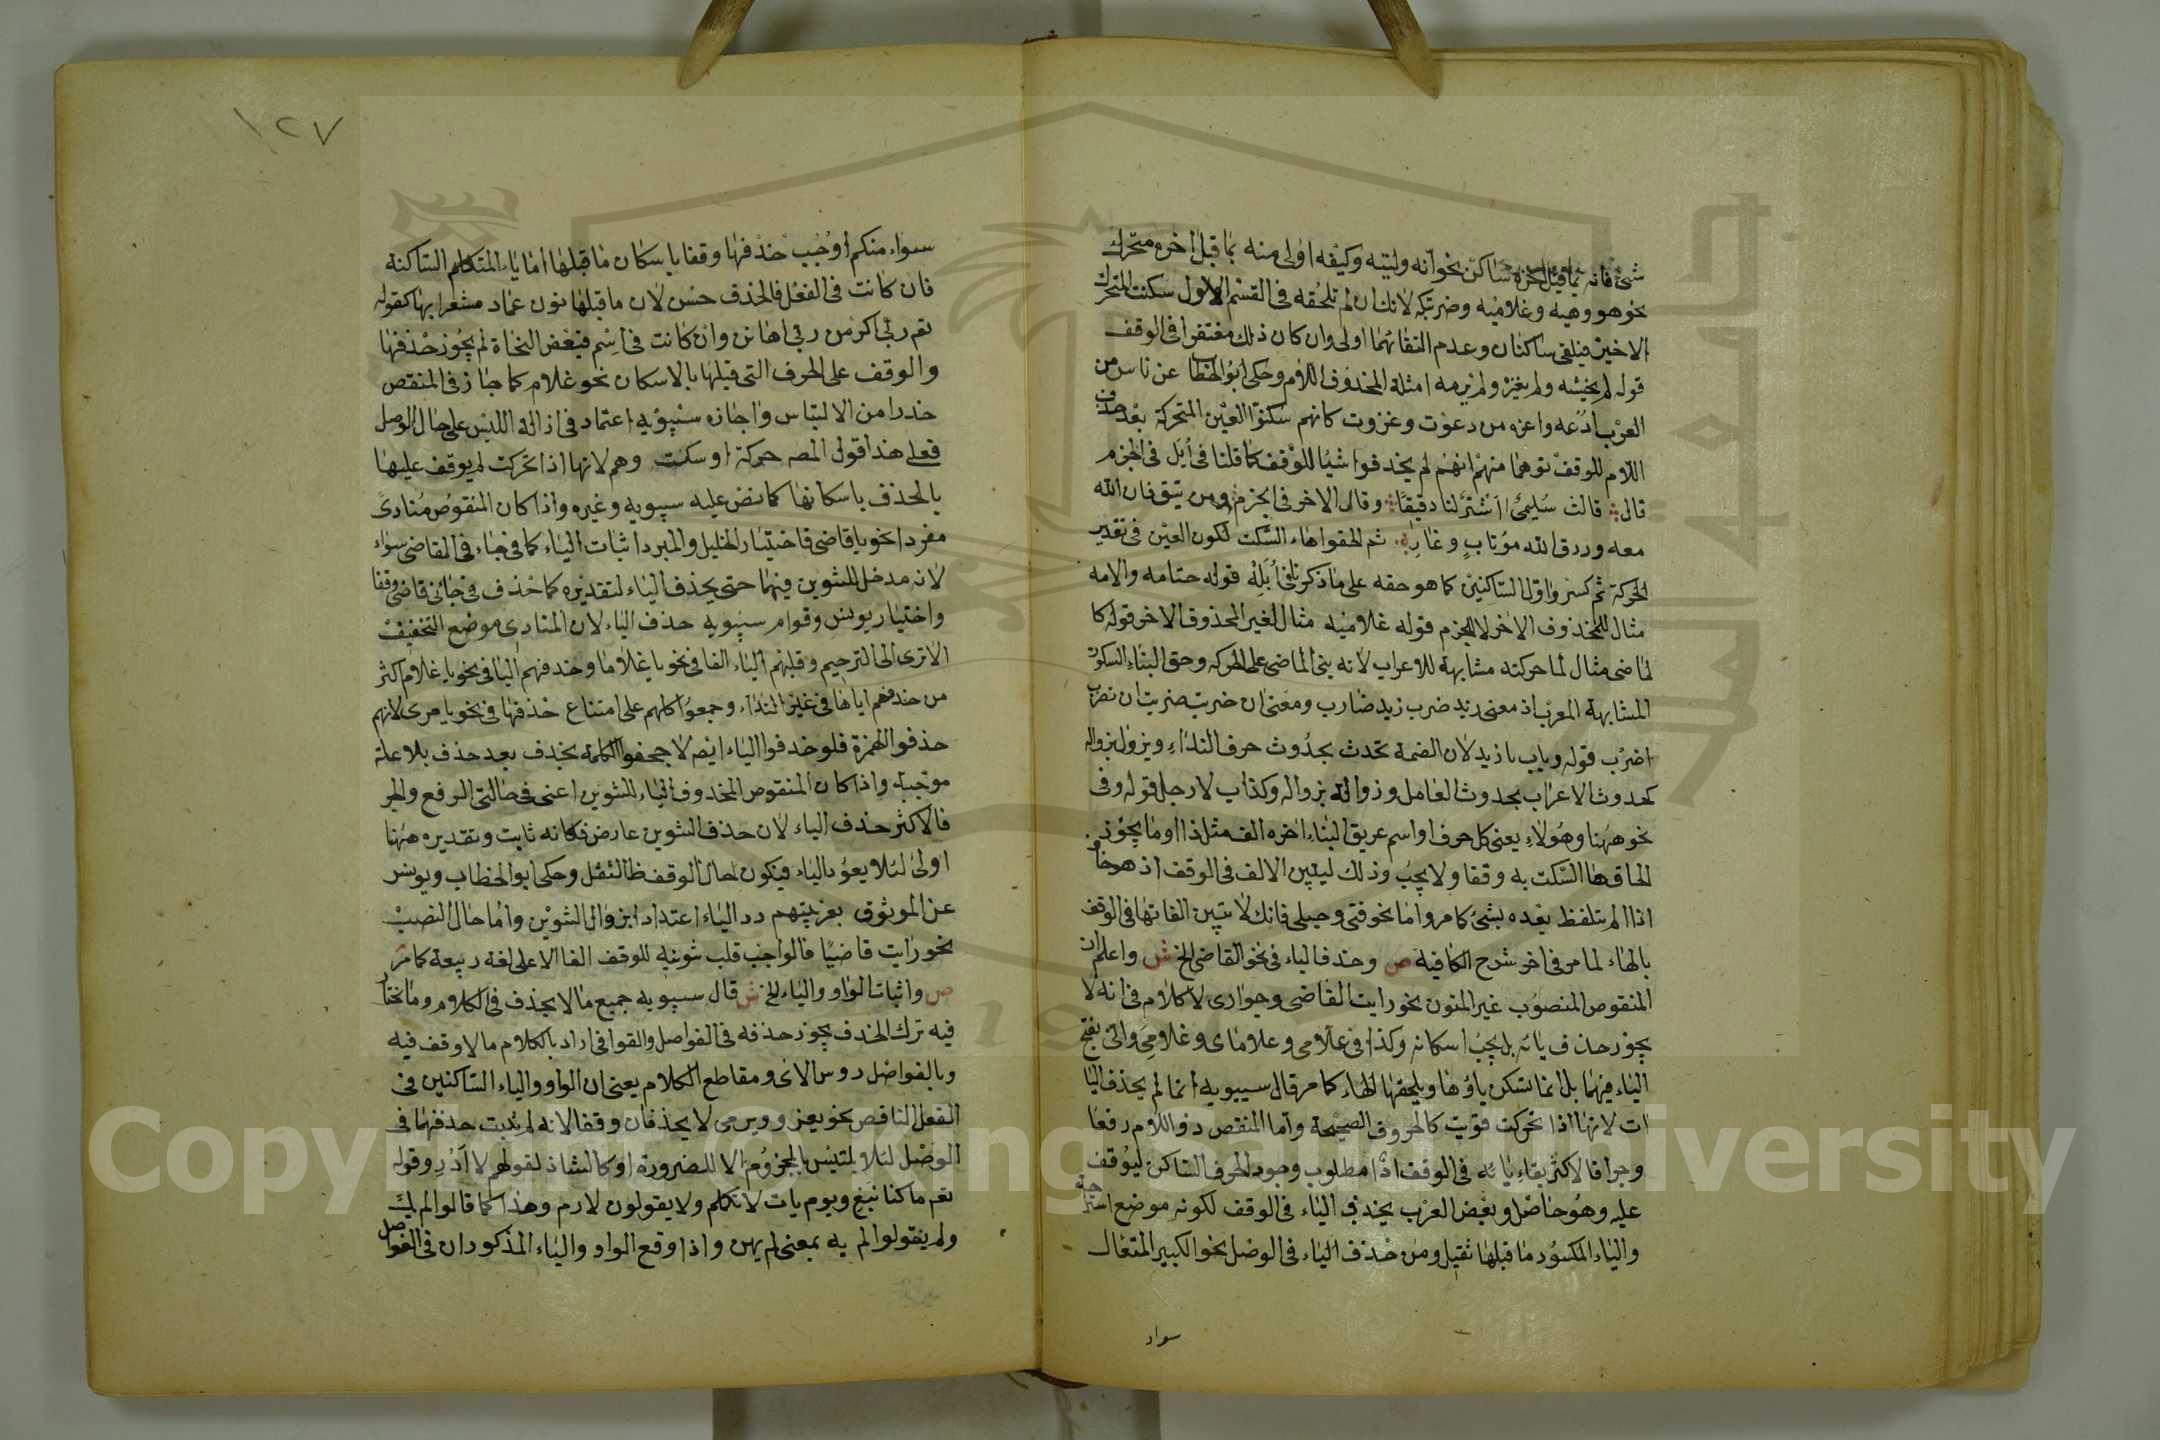 شئ فانه بما قبل اخره ساكن نحو انه وليته وكيفه اولى منه بما قبل اخره متحرك
نحو هو وهيه وغلاميه وضربتكه لانك ان لم تلحقه فى القسم الاول سكنت المتحرك
الاخير فيلقى ساكنان وعدم التقائهما اولى وان كان ذلك مغتفرا فى الوقف
قوله لم يخشه ولم يغزه ولم يرمه امثلة المحذوف اللام وحكى ابو الخطاب عن ناس من
العرب ادعه واغزه من دعوت وغزوت كانهم سكنوا العين المتحركة بعد حذف
اللام للوقف توهما منهم انهم لم يحذفوا شيئا للوقف كما قلنا فى ابل فى الجزم
قال قالت سليمى اشتر لنا دقيقا وقال الاخر فى الجزم ومن يتق فان الله
معه ورزق الله مؤتاب وغاد ثم الحقوا هاء السكت لكون العين فى تقدير
الحركة ثم كسروا اول الساكنين كما هو حقه على ما ذكرنا فى ابله قوله حتامه والامه
مثال للمحذوف الاخر لا للجزم قوله غلاميه مثال لغير المحذوف الاخر قوله كا
لماضى مثال لما حركته مشابهة للاعراب لانه بنى الماضى على الحركه وحق البناء السكون
لمشابهة المعرب اذ معنى زيد ضرب زيد ضارب ومعنى ان ضربت ضربت ان تضرب
اضرب قوله وباب يا زيد لان الضمة تحدث بحدوث حرف النداء ويزول بزواله
كحدوث الاعراب بحدوث العامل وزواله بزواله وكذا باب لا رجل قوله وفى
نحو ههنا وهؤلاء يعنى كل حرف او اسم عريق البناء اخره الف مثل ذا وما يجوز
الحاق هاء السكت به وقفا ولا يجب وذلك ليتبين الالف فى الوقف اذ هو خفى
اذا لم يتلفظ بعده بشئ كما مر واما نحو فتى وحبلى فانك لا تبين الفاتها فى الوقف
بالهاء لما مر فى اخر شرح الكافيه ص وحذف الياء فى نحو القاضى الخ ش واعلم ان
المنقوص المنصوب غير المنون نحو رايت القاضى وجوارى لا كلام فى انه لا
يجوز حذف يائه بل يجب اسكانه وكذا فى غلامى وغلاماى وغلامى وانى بفتح
الياء فيهما بل انما تسكن ياؤها ويلحقها الهاء كما مر قال سيبويه انما لم يحذف اليا
ات لانها اذا تحركت قويت كالحروف الصحيحة واما المنقوص ذو اللام رفعا
وجرا فالاكثر بقاء يائه فى الوقف اذ المطلوب وجود الحرف الساكن ليوقف
عليه وهو حاصل وبعض العرب يحذف الياء فى الوقف لكونه موضع استراحة
والياء المكسور ما قبلها ثقيل ومن حذف الياء فى الوصل نحو الكبير المتعال
سواء
١٢٧
سواء منكم اوجب حذفها وقفا باسكان ما قبلها اما ياء المتكلم الساكنة
فان كانت فى الفعل فالحذف حسن لان ما قبلها نون عماد مشعر بها كقوله
تع ربى اكرمن ربى اهانن وان كانت فى اسم فبعض النحاة لم يجوز حذفها
والوقف على الحرف التى قبلها بالاسكان نحو غلام كما جاز فى المنقص
حذرا من الالتباس واجازه سيبويه اعتماد فى ازالة اللبس على حال الوصل
فعلى هذا قول المصـ حركة او سكت وهم لانها اذا تحركت لم يوقف عليها
بالحذف باسكانها كما نص عليه سيبويه وغيره واذا كان المنقوص منادى
مفردا نحو يا قاضى فاختيار الخليل والمبرد اثبات الياء كما فى جاء فى القاضى سواء
لانه مدخل للتنوين فيهما حتى يحذف الياء لتقديره كما حذف فى جائنى قاضى وقفا
واختيار يونس وقوام سيبويه حذف الياء لان المنادى موضع التخفيف
الا ترى الى الترخيم وقلبهم الياء الفا فى نحو يا غلاما وحذفهم اليا فى نحو يا غلام اكثر
من حذفهم اياها فى غير النداء وجمعوا كلهم على امتناع حذفها فى نحو يا مرى لانهم
حذفوا الهمزة فلو حذفوا الياء ايضـ لاجحفوا الكلمة بحذف بعد حذف بلا علة
موجبة واذا كان المنقوص المحذوف الياء للتنوين اعنى فى حالتى الرفع والجر
فالاكثر حذف الياء لان حذف التنوين عارض فكانه ثابت وتقديره ههنا
اولى لئلا يعود الياء فيكون حال الوقف ظاهر الثقل وحكى ابو الخطاب ويونس
عن الموثوق بعربيتهم رد الياء اعتدادا بزوال التنوين واما حال النصب
نحو رايت قاضيا فالواجب قلب تنوينه للوقف الفا الا على لغة ربيعة كما مر
ص واثبات الواو والياء الخ ش قال سيبويه جميع ما لا يحذف فى الكلام وما يختار
فيه ترك الحذف يجوز حذفه فى الفواصل والقوافى اراد بالكلام ما لا وقف فيه
وبالفواصل روس الاى ومقاطع الكلام يعنى ان الواو والياء الساكنين فى
الفعل الناقص نحو يغزو ويرمى لا يحذفان وقفا لانه لم يثبت حذفهما فى
الوصل لئلا يلتبس بالمجزوم الا للضرورة او كالشاذ لقولهم لا ادر وقوله
تعم ما كنا نبغ ويوم يات لا تكلم ولا يقولون لا رم وهذا كما قالوا لم يك
ولم يقولوا لم يه بمعنى لم يهن واذا وقع الواو والياء المذكوران فى الفواصل
Copyright © King Saud University